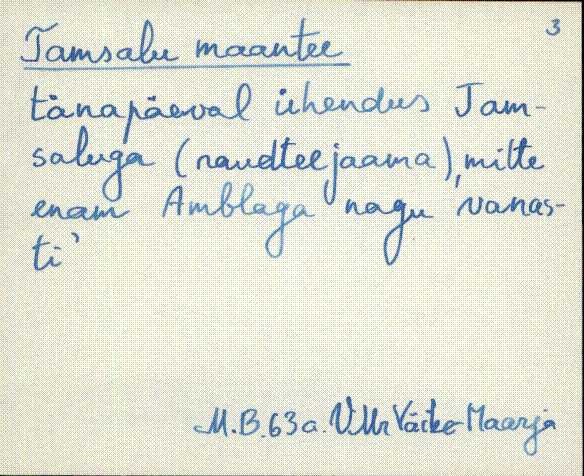 3
Tamsalu maantee
tänapäeval ühendus Tam-
saluga (raudteejaama), mitte
enam Amblaga nagu 'vanas-
ti'
M.B. 63 a. VMr Väike-Maarja